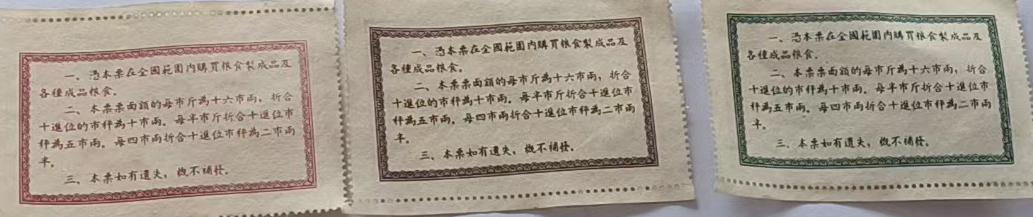 一、憑本票在全國範圍內購買粮食製成品及
各種成品粮食。
二、本票票面額的每市斤為十六市兩，折合
十進位的市秤為十市兩。每半市斤折合十進位市
秤為五市兩。每四市兩折合十進位市秤為二市兩
半。
三、本票如有遺失，概不補發。
一、憑本票在全國範圍內購買粮食製成品及
各種成品粮食。
二、本票票面額的每市斤為十六市兩，折合
十進位的市秤為十市兩。每半市斤折合十進位市
秤為五市兩。每四市兩折合十進位市秤為二市兩
半。
三、本票如有遺失，概不補發。
一、憑本票在全國範圍內購買粮食製成品及
各種成品粮食。
二、本票票面額的每市斤為十六市兩，折合
十進位的市秤為十市兩。每半市斤折合十進位市
秤為五市兩。每四市兩折合十進位市秤為二市兩
半。
三、本票如有遺失，概不補發。